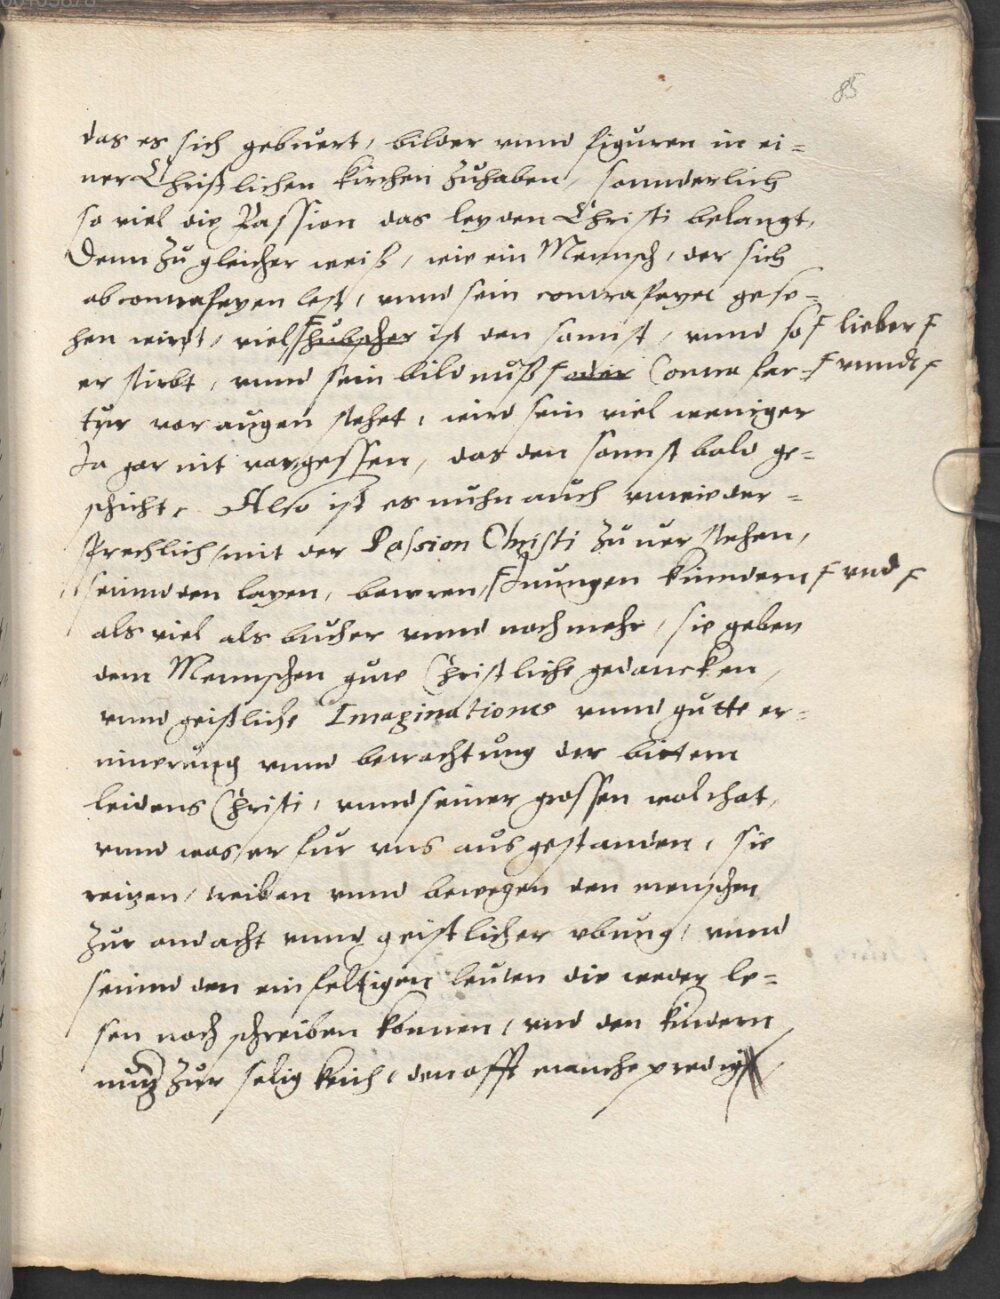 85
das es sich gebuert, bilder vnnd figuren in ei=
ner Christlichen kirchen zuhaben, sonnderlich
so viel die Passion das leyden Christi belangt,
Denn zu gleicher weiß, wie ein Mennsch, der sich
abconnterfeyen lest, vnnd sein conterfeyet gese=
hen wirdt, viel hubscher ist den sonnst, vnnd so lieber
er stirbt, vnnd sein bildnuß oder Conterfec= vnndt
tur vor augen stehet, wird sein viel weniger
Ja gar nit vorgessen, das den sonnst bald ge=
schicht. Also ist es nuhn auch vnwieder=
sprechlich mit der Passion Christi zuuerstehen,
seinnd den layen, bawren, Jungen kinndern vnd
als viel als bucher vnnd noch mehr, sie geben
dem Mennschen gute Christliche gedancken,
vnnd geistliche Imaginationes vnnd gutte er=
innerung vnnd betrachtung der bittern
leidens Christi, vnnd seiner grossen wolthat,
vnnd was er fur vns ausgestanden, sie
reitzen, treiben vnnd bewegen den menschen
zur andacht vnnd geistlicher vbung, vnnd
seinnd den einfeltigen leuten die weder le=
sen noch schreiben konnen, vnd den kindern
nutz zur seligkeith, den offt manche predig